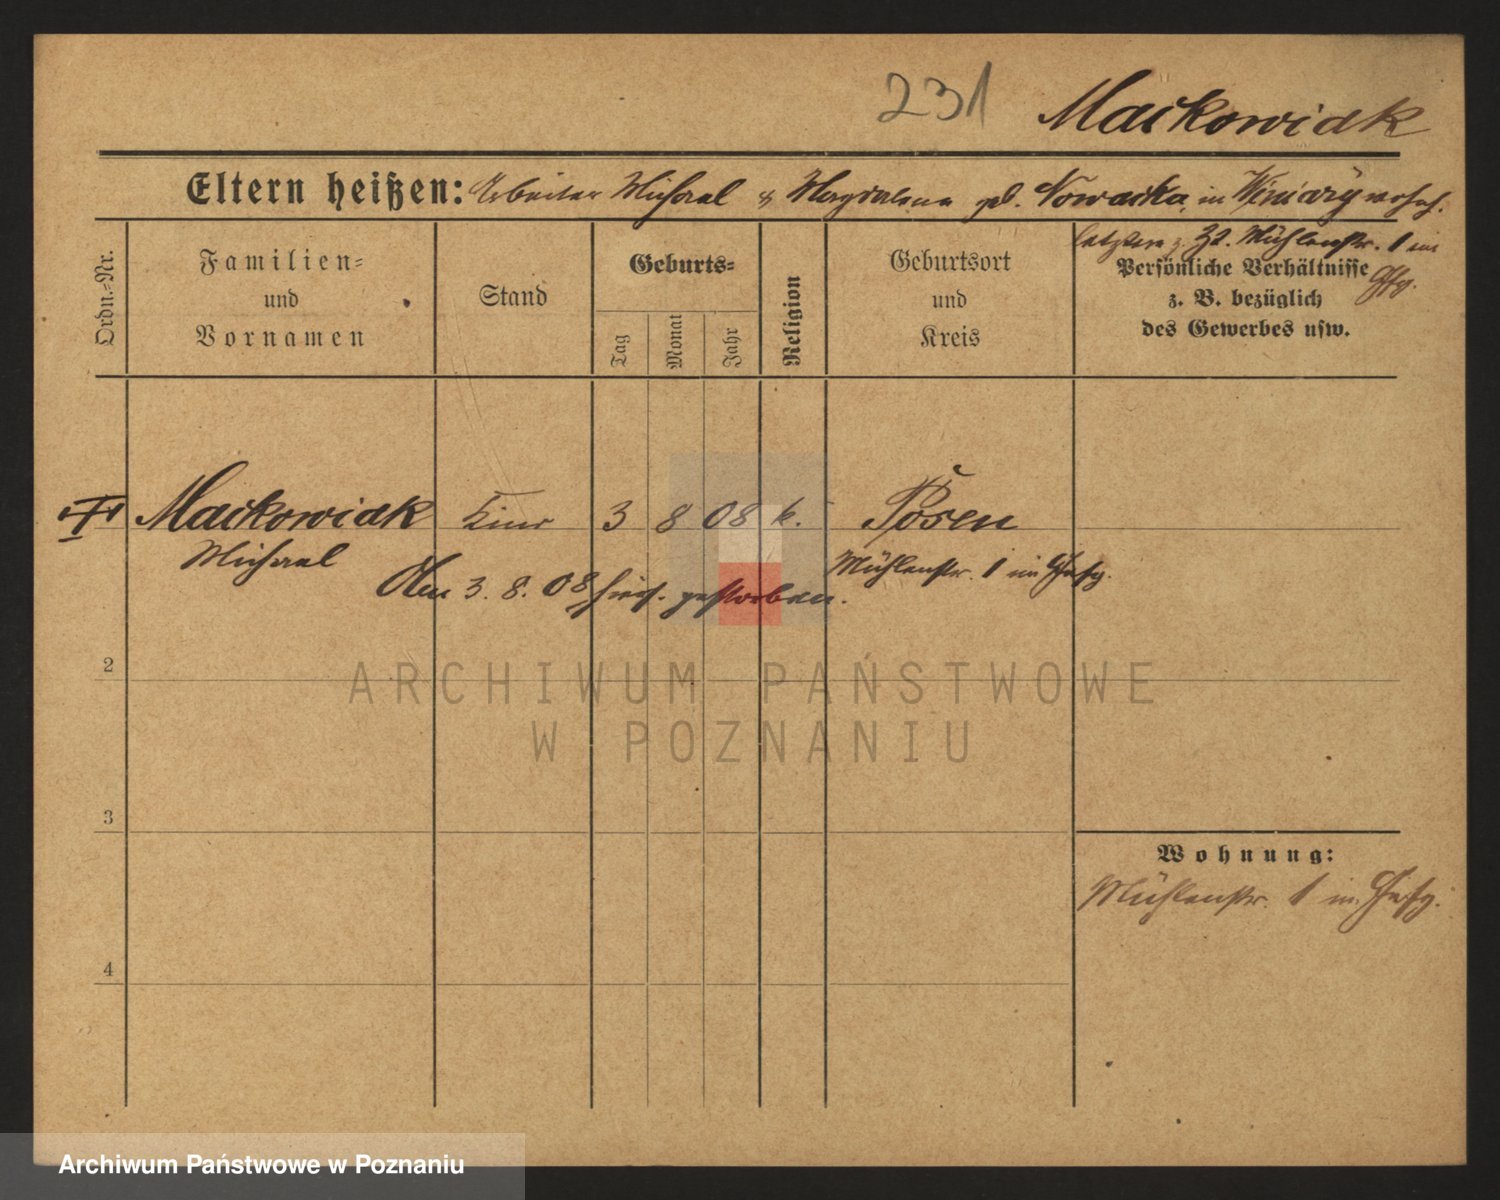 231 Maćkowiak
Eltern heißen: Arbeiter Michael & Magdalena geb. Nowacka, in Winiary wohnh.
letztere z. Zt. Mühlenstr. 1 im
Ordn.-Nr.
Familien-
und
Vornamen
Stand
Geburts-
Tag
Monat
Jahr
Religion
Geburtsort
und
Kreis
Persönliche Verhältnisse
z. B. bezüglich
des Gewerbes usw.
Maćkowiak Kind 3 8 08 k. Posen
Michael
Mühlenstr. 1 im
Am 3. 8. 08 hies. gestorben.
2
3
4
Wohnung:
Mühlenstr. 1 im
ARCHIWUM PAŃSTWOWE
W POZNANIU
Archiwum Państwowe w Poznaniu